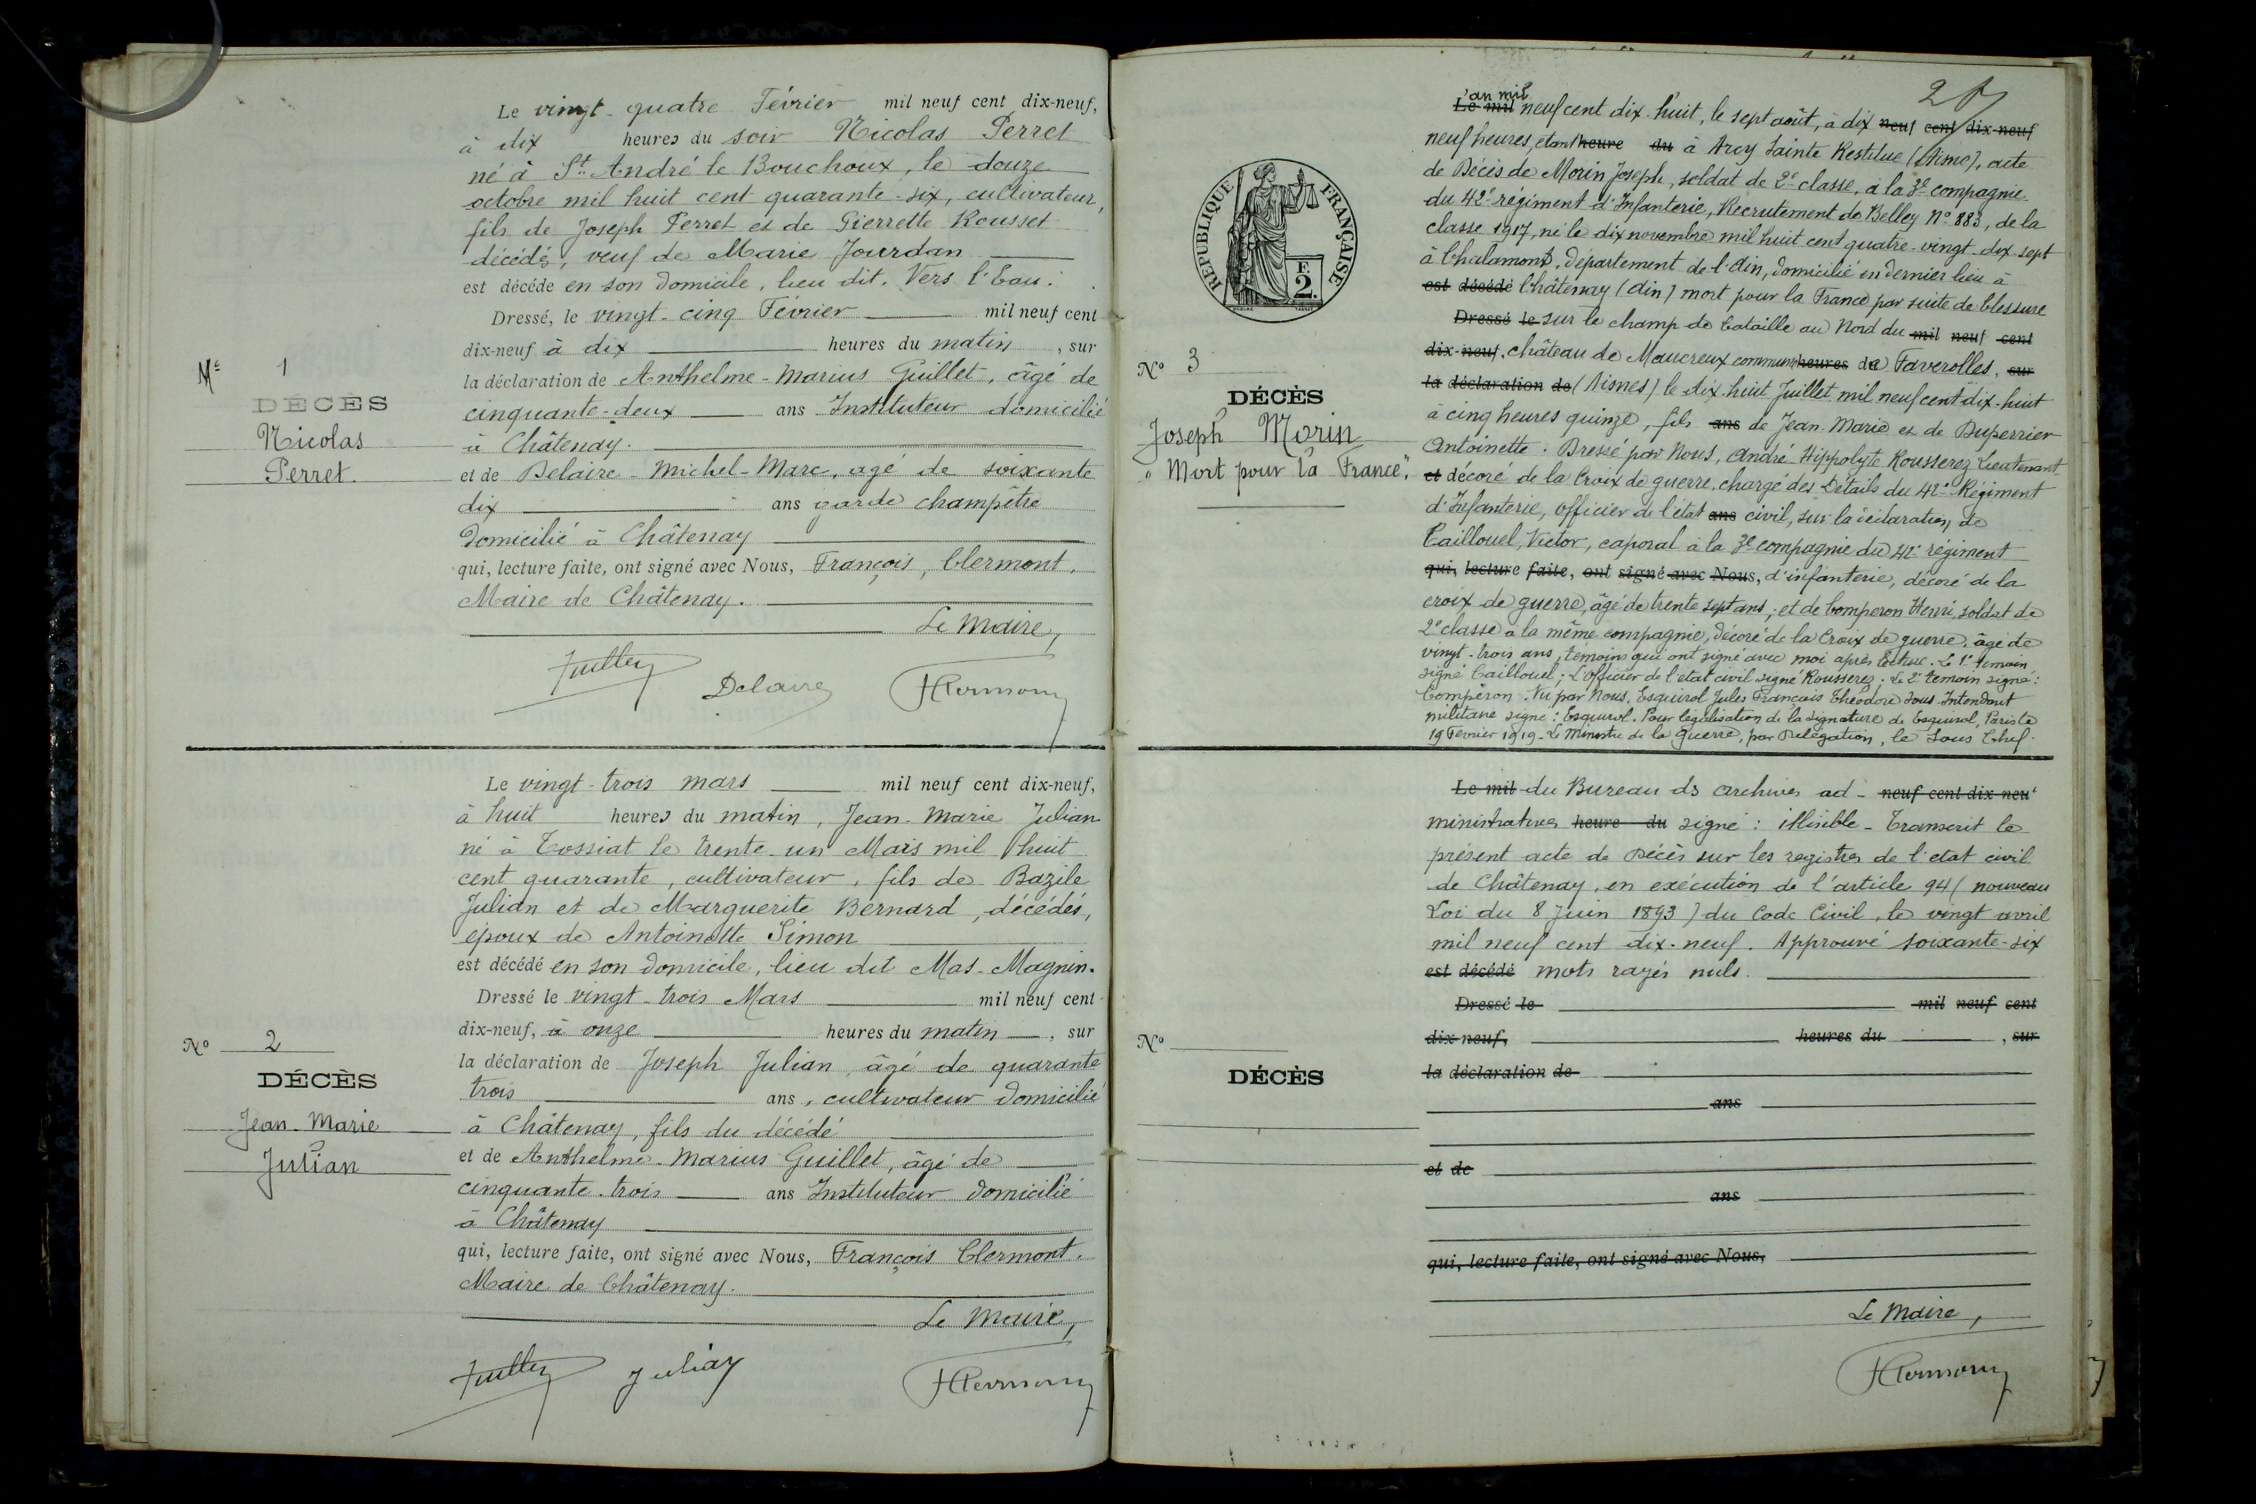 Le vingt-quatre Février mil neuf cent dix-neuf,
à dix heures du soir Nicolas Perret
né à St. André le Bouchoux, le douze
octobre mil huit cent quarante-six, cultivateur,
fils de Joseph Perret et de Pierrette Rousset
décédés, veuf de Marie Jourdan
est décédé en son domicile, lieu dit. Vers l'Eau.
Dressé, le vingt-cinq Février mil neuf cent
dix-neuf à dix heures du matin, sur
la déclaration de Anthelme-Marius Guillet, âgé de
cinquante-deux ans Instituteur domicilié
à Châtenay.
et de Delaire-Michel-Marc, agé de soixante
dix ans garde champêtre
domicilié à Châtenay
qui, lecture faite, ont signé avec Nous, François, Clermont,
Maire de Châtenay.
Le Maire,
Guillet
Delaire
Clermont
No 1
DÉCÈS
Nicolas
Perret.
Le vingt-trois mars mil neuf cent dix-neuf,
à huit heures du matin, Jean-Marie Julian
né à Tossiat le trente-un Mars mil huit
cent quarante, cultivateur, fils de Bazile
Julian et de Marguerite Bernard, décédés,
époux de Antoinette Simon
est décédé en son domicile, lieu dit Mas-Magnin.
Dressé le vingt-trois Mars mil neuf cent
dix-neuf, à onze heures du matin, sur
la déclaration de Joseph Julian, âgé de quarante
trois ans, cultivateur domicilié
à Châtenay, fils du décédé
et de Anthelme-Marius Guillet, âgé de
cinquante-trois ans Instituteur domicilié
à Châtenay
qui, lecture faite, ont signé avec Nous, François Clermont.
Maire de Châtenay.
Le Maire,
Guillet
Julian
Clermont
No 2
DÉCÈS
Jean-Marie
Julian
RÉPUBLIQUE FRANÇAISE
F.
2.
No 3
DÉCÈS
Joseph Morin
"Mort pour la France".
2
Le mil l'an mil neuf cent dix-huit, le sept août, à dix neuf cent dix-neuf
neuf heures, étant heure du à Arcy Sainte Restitue (Aisne), acte
de Décès de Morin Joseph, soldat de 2e classe, à la 3e compagnie
du 42e régiment d'Infanterie, Recrutement de Belley No 883, de la
classe 1917, né le dix novembre mil huit cent quatre-vingt-dix sept
à Chalamont, département de l'Ain, domicilié en dernier lieu à
est décédé Châtenay (Ain) mort pour la France par suite de blessure
Dressé le sur le champ de bataille au Nord du mil neuf cent
dix-neuf, château de Maucreux commune heures du de Faverolles, sur
la déclaration de (Aisnes) le dix-huit Juillet mil neuf cent dix-huit
à cinq heures quinze, fils ans de Jean-Marie et de Duperrier
Antoinette. Dressé par Nous, André Hippolyte Rousserez Lieutenant
et décoré de la Croix de guerre, chargé des Détails du 42e Régiment
d'Infanterie, officier de l'état ans civil, sur la déclaration de
Caillouel, Victor, caporal à la 3e compagnie du 42e régiment
qui, lecture faite, ont signé avec Nous, d'infanterie, décoré de la
croix de guerre, âgé de trente sept ans; et de Comperon Henri, soldat de
2e classe à la même compagnie, décoré de la Croix de guerre, âgé de
vingt-trois ans, témoins qui ont signé avec moi après lecture. Le 1er témoin
signé Caillouel; L'officier de l'état civil signé Rousserez; Le 2e témoin signé:
Comperon. Vu par Nous, Esquirol Jules François Théodore sous-Intendant
militaire signé: Esquirol. Pour légalisation de la signature de Esquirol, Paris le
19 Février 1919. Le Ministre de la Guerre, par Délégation, le Sous Chef.
Le mil du Bureau ds archives ad- neuf cent dix-neuf
ministratives heure du signé: illisible - Transcrit le
présent acte de Décès sur les registres de l'état civil
de Châtenay, en exécution de l'article 94 (nouveau
Loi du 8 Juin 1893) du Code Civil, le vingt avril
mil neuf cent dix-neuf. Approuvé soixante-six
est décédé mots rayés nuls.
Dressé le mil neuf cent
dix-neuf, heures du , sur
la déclaration de
ans
et de
ans
qui, lecture faite, ont signé avec Nous,
Le Maire,
Clermont
No
DÉCÈS